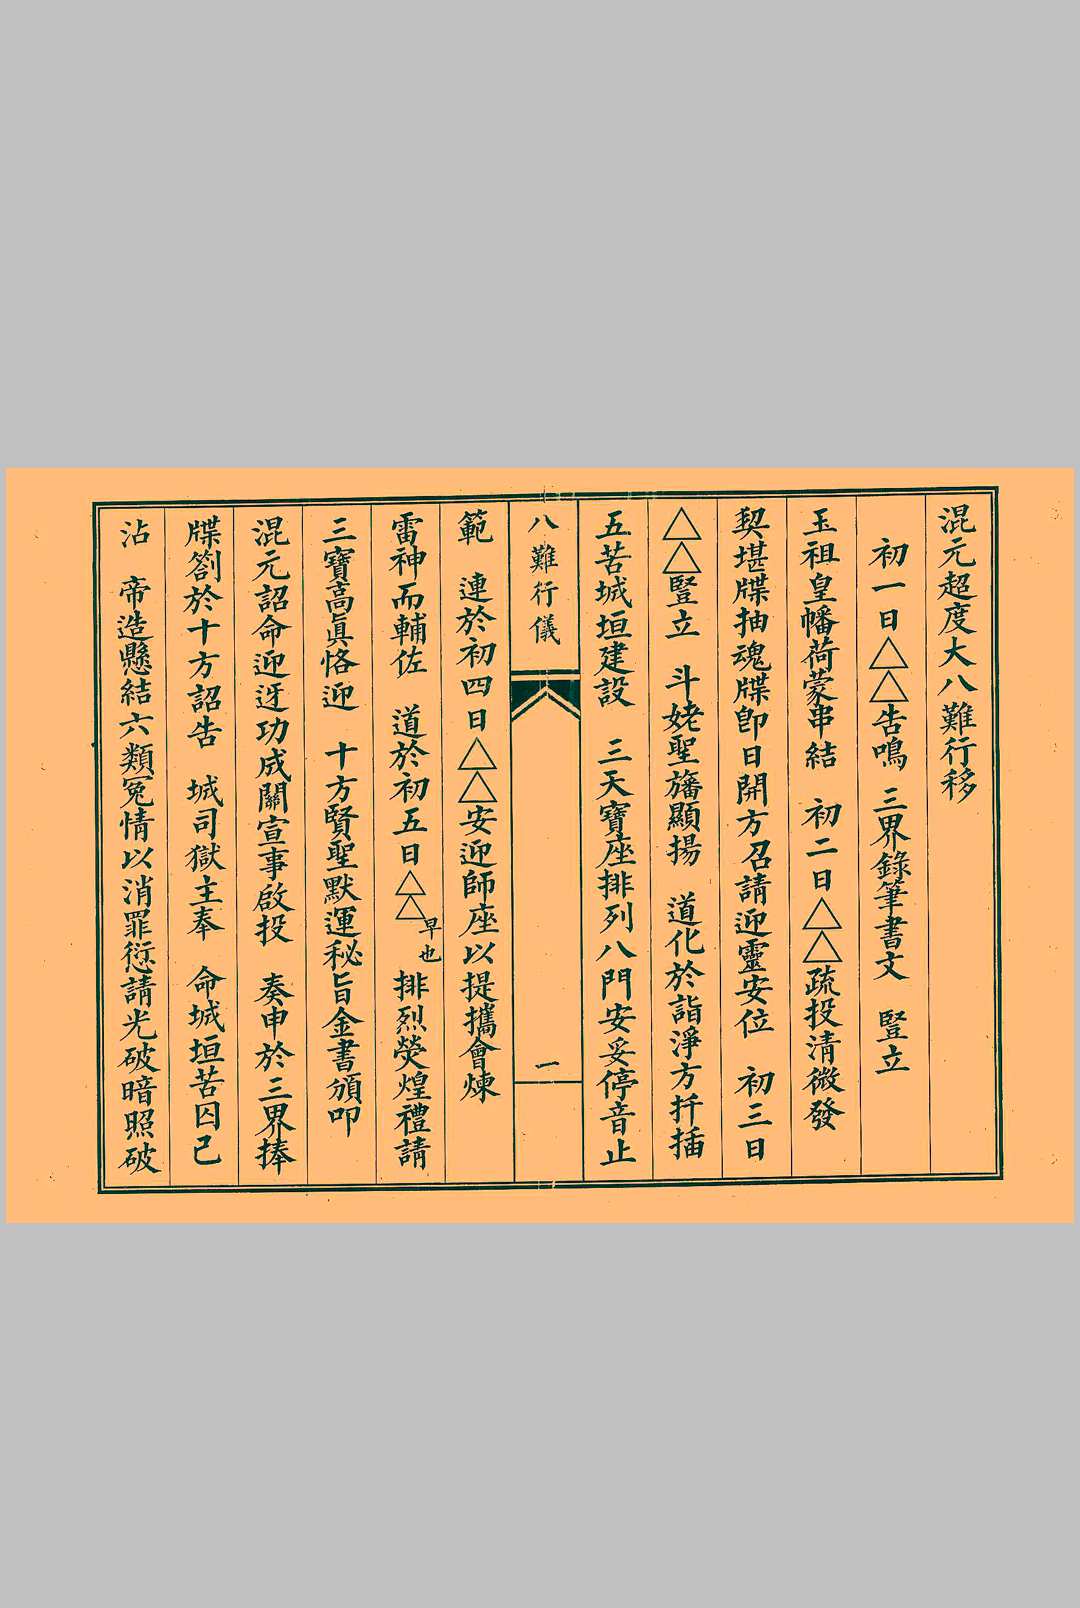 混元超度大八難行移
初一日△△告鳴 三界錄筆書文 豎立
玉祖皇幡荷蒙串結 初二日△△疏投清微發
契堪牒抽魂牒卽日開方召請迎靈安位 初三日
△△豎立 斗姥聖旛顯揚 道化於詣淨方扦插
五苦城垣建設 三天寶座排列八門安妥停音止
八難行儀 一
範 連於初四日△△安迎師座以提攜會煉
雷神而輔佐 道於初五日△△早也 排烈熒煌禮請
三寶高眞恪迎 十方賢聖默運秘旨金書頒叩
混元詔命迎迓功成關宣事啟投 奏申於三界捧
牒劄於十方詔告 城司獄主奉 命城垣苦囚已
沾 帝造懸結六類冤情以消罪愆請光破暗照破